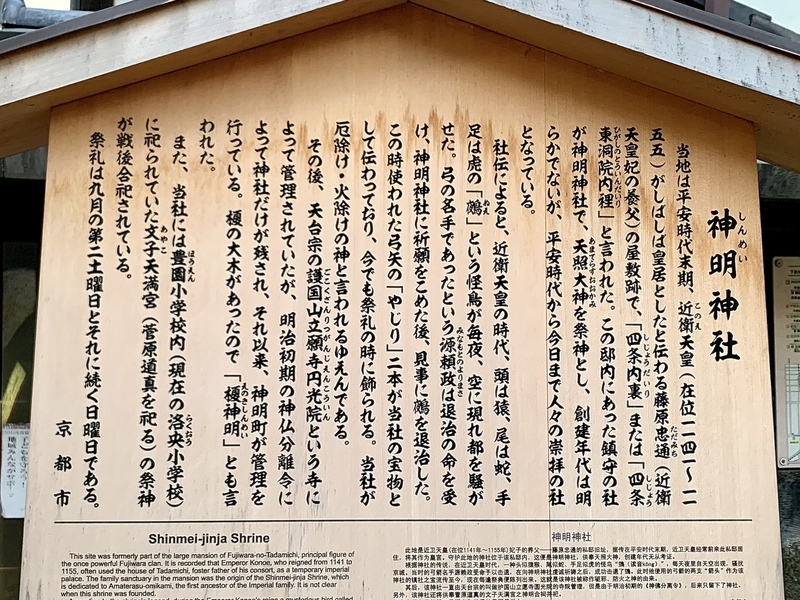 神明神社
しんめい
当地は平安時代末期、近衛天皇(在位一一四一~一一
五五)がしばしば皇居としたと伝わる藤原忠通(近衛
天皇妃の養父)の屋敷跡で、「四条内裏」または「四条
東洞院内裡」と言われた。この邸内にあった鎮守の社
が神明神社で、天照大神を祭神とし、創建年代は明
らかでないが、平安時代から今日まで人々の崇拝の社
となっている。
社伝によると、近衛天皇の時代、頭は猿、尾は蛇、手
足は虎の「鵺」という怪鳥が毎夜、空に現れ都を騒が
せた。弓の名手であったという源頼政は退治の命を受
け、神明神社に祈願をこめた後、見事に鵺を退治した。
この時使われた弓矢の「やじり」二本が当社の宝物と
して伝わっており、今でも祭礼の時に飾られる。当社が
厄除け・火除けの神と言われるゆえんである。
その後、天台宗の護国山立願寺円光院という寺に
よって管理されていたが、明治初期の神仏分離令に
よって神社だけが残され、それ以来、神明町が管理を
行っている。榎の大木があったので「榎神明」とも言
われた。
また、当社には豊園小学校内(現在の洛央小学校)
に祀られていた文子天満宮(菅原道真を祀る)の祭神
が戦後合祀されている。
祭礼は九月の第二土曜日とそれに続く日曜日である。
京都市
Shinmei-jinja Shrine
This site was formerly part of the large mansion of Fujiwara-no-Tadamichi, principal figure of
the once powerful Fujiwara clan. It is recorded that Emperor Konoe, who reigned from 1141 to
1155, often used the house of Tadamichi, foster father of his consort, as a temporary imperial
palace. The family sanctuary in the mansion was the origin of the Shinmei-jinja Shrine, which
is dedicated to Amaterasu-omikami, the first ancestor of the Imperial family. It is not clear
when this shrine was founded.
神明神社